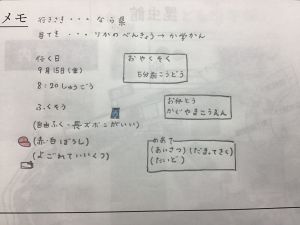 メモ
行きさき・・・なら県
目てき・・・りかのべんきょう→かがくかん
行く日
9月15日(金)
8:20しゅうごう
ふくそう
(自由ふく・長ズボンがいい)
(赤・白ぼうし)
(よごれていいくつ)
おやくそく
5分前こうどう
お弁とう
かぐやまこうえん
めあて
(あいさつ)(だまってきく)
(たいど)